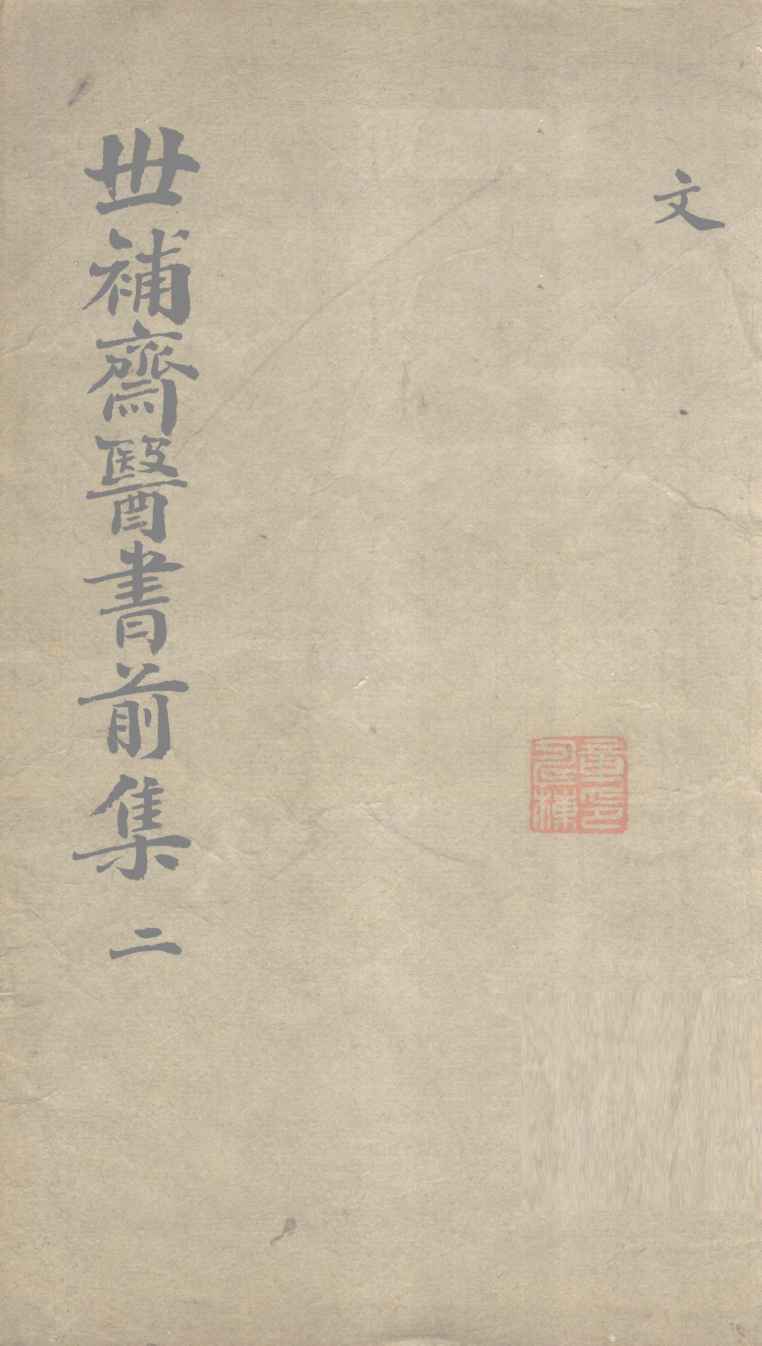 文
丗補齋醫書前集 二